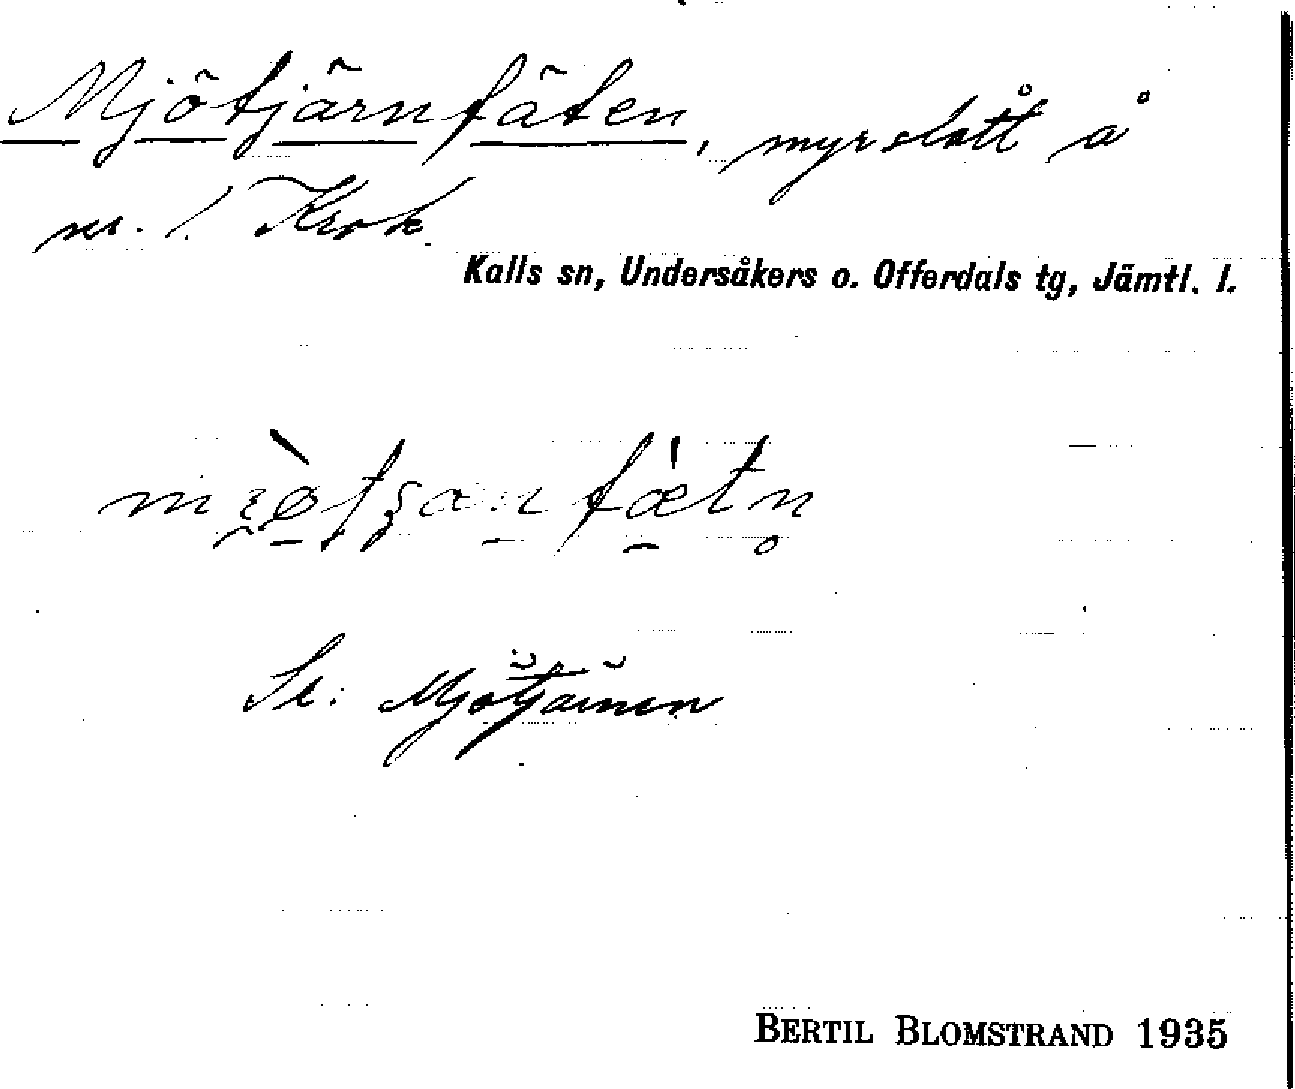 Mjötjärnfäten, myrslått å
nr. 1 Krok.
Kalls sn, Undersåkers o. Offerdals tg, Jämtl. l.
Se: Mjötjärnen
BERTIL BLOMSTRAND 1935